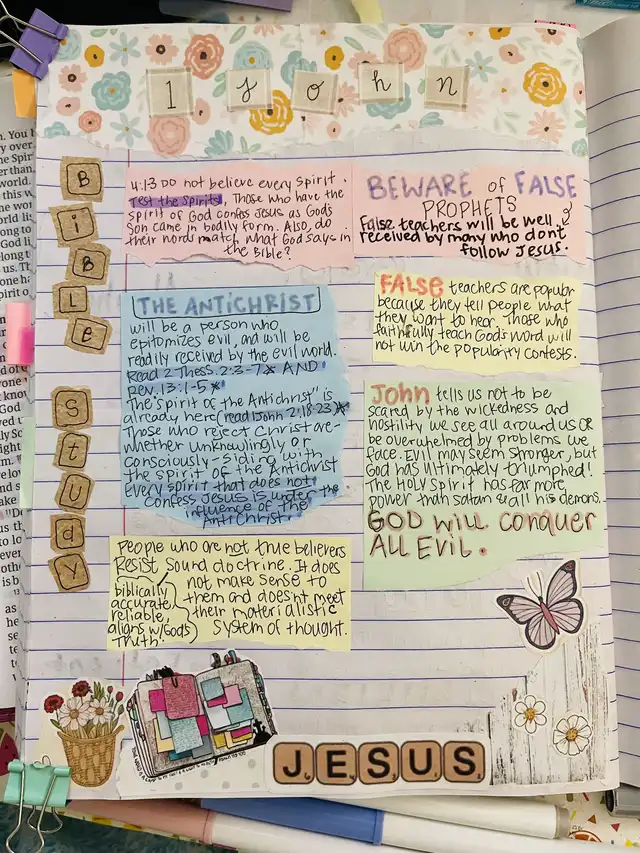 1 John
BiBLe
Study
4:1-3 Do not believe every Spirit.
Test the Spirits. Those who have the
spirit of God confess Jesus as God's
Son came in bodily form. Also, do
their words match what God says in
the Bible?
BEWARE of FALSE
PROPHETS
False teachers will be well
received by many who dont
follow Jesus.
FALSE teachers are popular
because they tell people what
they want to hear. Those who
faithfully teach God's word will
not win the popularity contests.
THE ANTiCHRIST
will be a person who
epitomizes evil, and will be
readily received by the evil world.
Read 2 Thess. 2:3-7* AND
Rev. 13:1-5*
"The spirit of the Antichrist" is
already here (read 1 John 2:18-23)*
Those who reject Christ are-
whether unknowlingly or
consciously-siding with
the spirit of the Antichrist
Every spirit that does not
confess Jesus is under the
influence of the
Antichrist.
John tells us not to be
scared by the wickedness and
hostility we see all around us OR
be overwhelmed by problems we
face. Evil may seem stronger, but
God has ultimately triumphed!
The HOLY Spirit has far more
power than satan & all his demons.
GOD will conquer
ALL EviL.
People who are not true believers
Resist sound doctrine. It does
not make sense to
them and doesn't meet
their materialistic
system of thought.
biblically
accurate,
reliable,
aligns w/God's
Truth!
JESUS